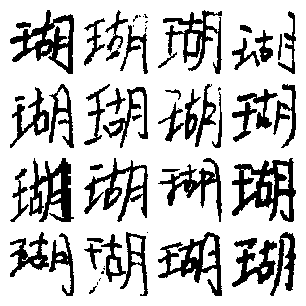 瑚瑚瑚瑚
瑚瑚瑚瑚
瑚瑚瑚瑚
瑚瑚瑚瑚